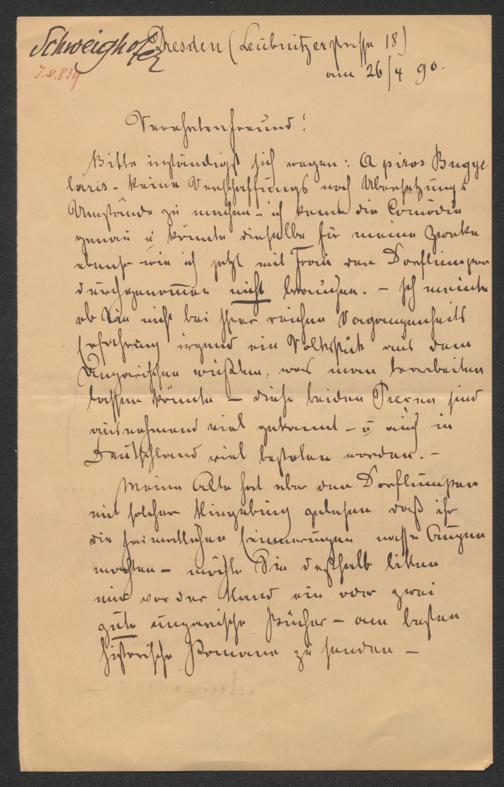 Schweighofer
Dresden (Leubnitzerstrasse 18)
I.N. 839
am 26/4 90.
Verehrter Freund!
Bitte inständigst sich wegen: A piros Bugyel
laris - keine Verschaffungs noch Übersetzungs
Umstände zu machen - ich kenne die Comödie
genau u könnte dieselbe für meine Zwecke
ebenso wie ich jetzt mit Frau den Dorflumpen
durchgenommen nicht brauchen. - Ich meinte
ob Sie nicht bei Ihrer reichen Vergangenheits
Erfahrung irgend ein Volksstück aus dem
Ungarischen wüßten, was man bearbeiten
lassen könnte - diese beiden Piecen sind
ausnehmend viel gekannt - u auch in
Deutschland viel bestolen worden. -
Meine Alte hat aber den Dorflumpen
mit solcher Hingebung gelesen daß ihr
die heimatlichen Erinnerungen nasse Augen
machten - möchte Sie deshalb bitten
mir vor der Hand ein oder zwei
gute ungarische Bücher - am besten
historische Romane zu senden -